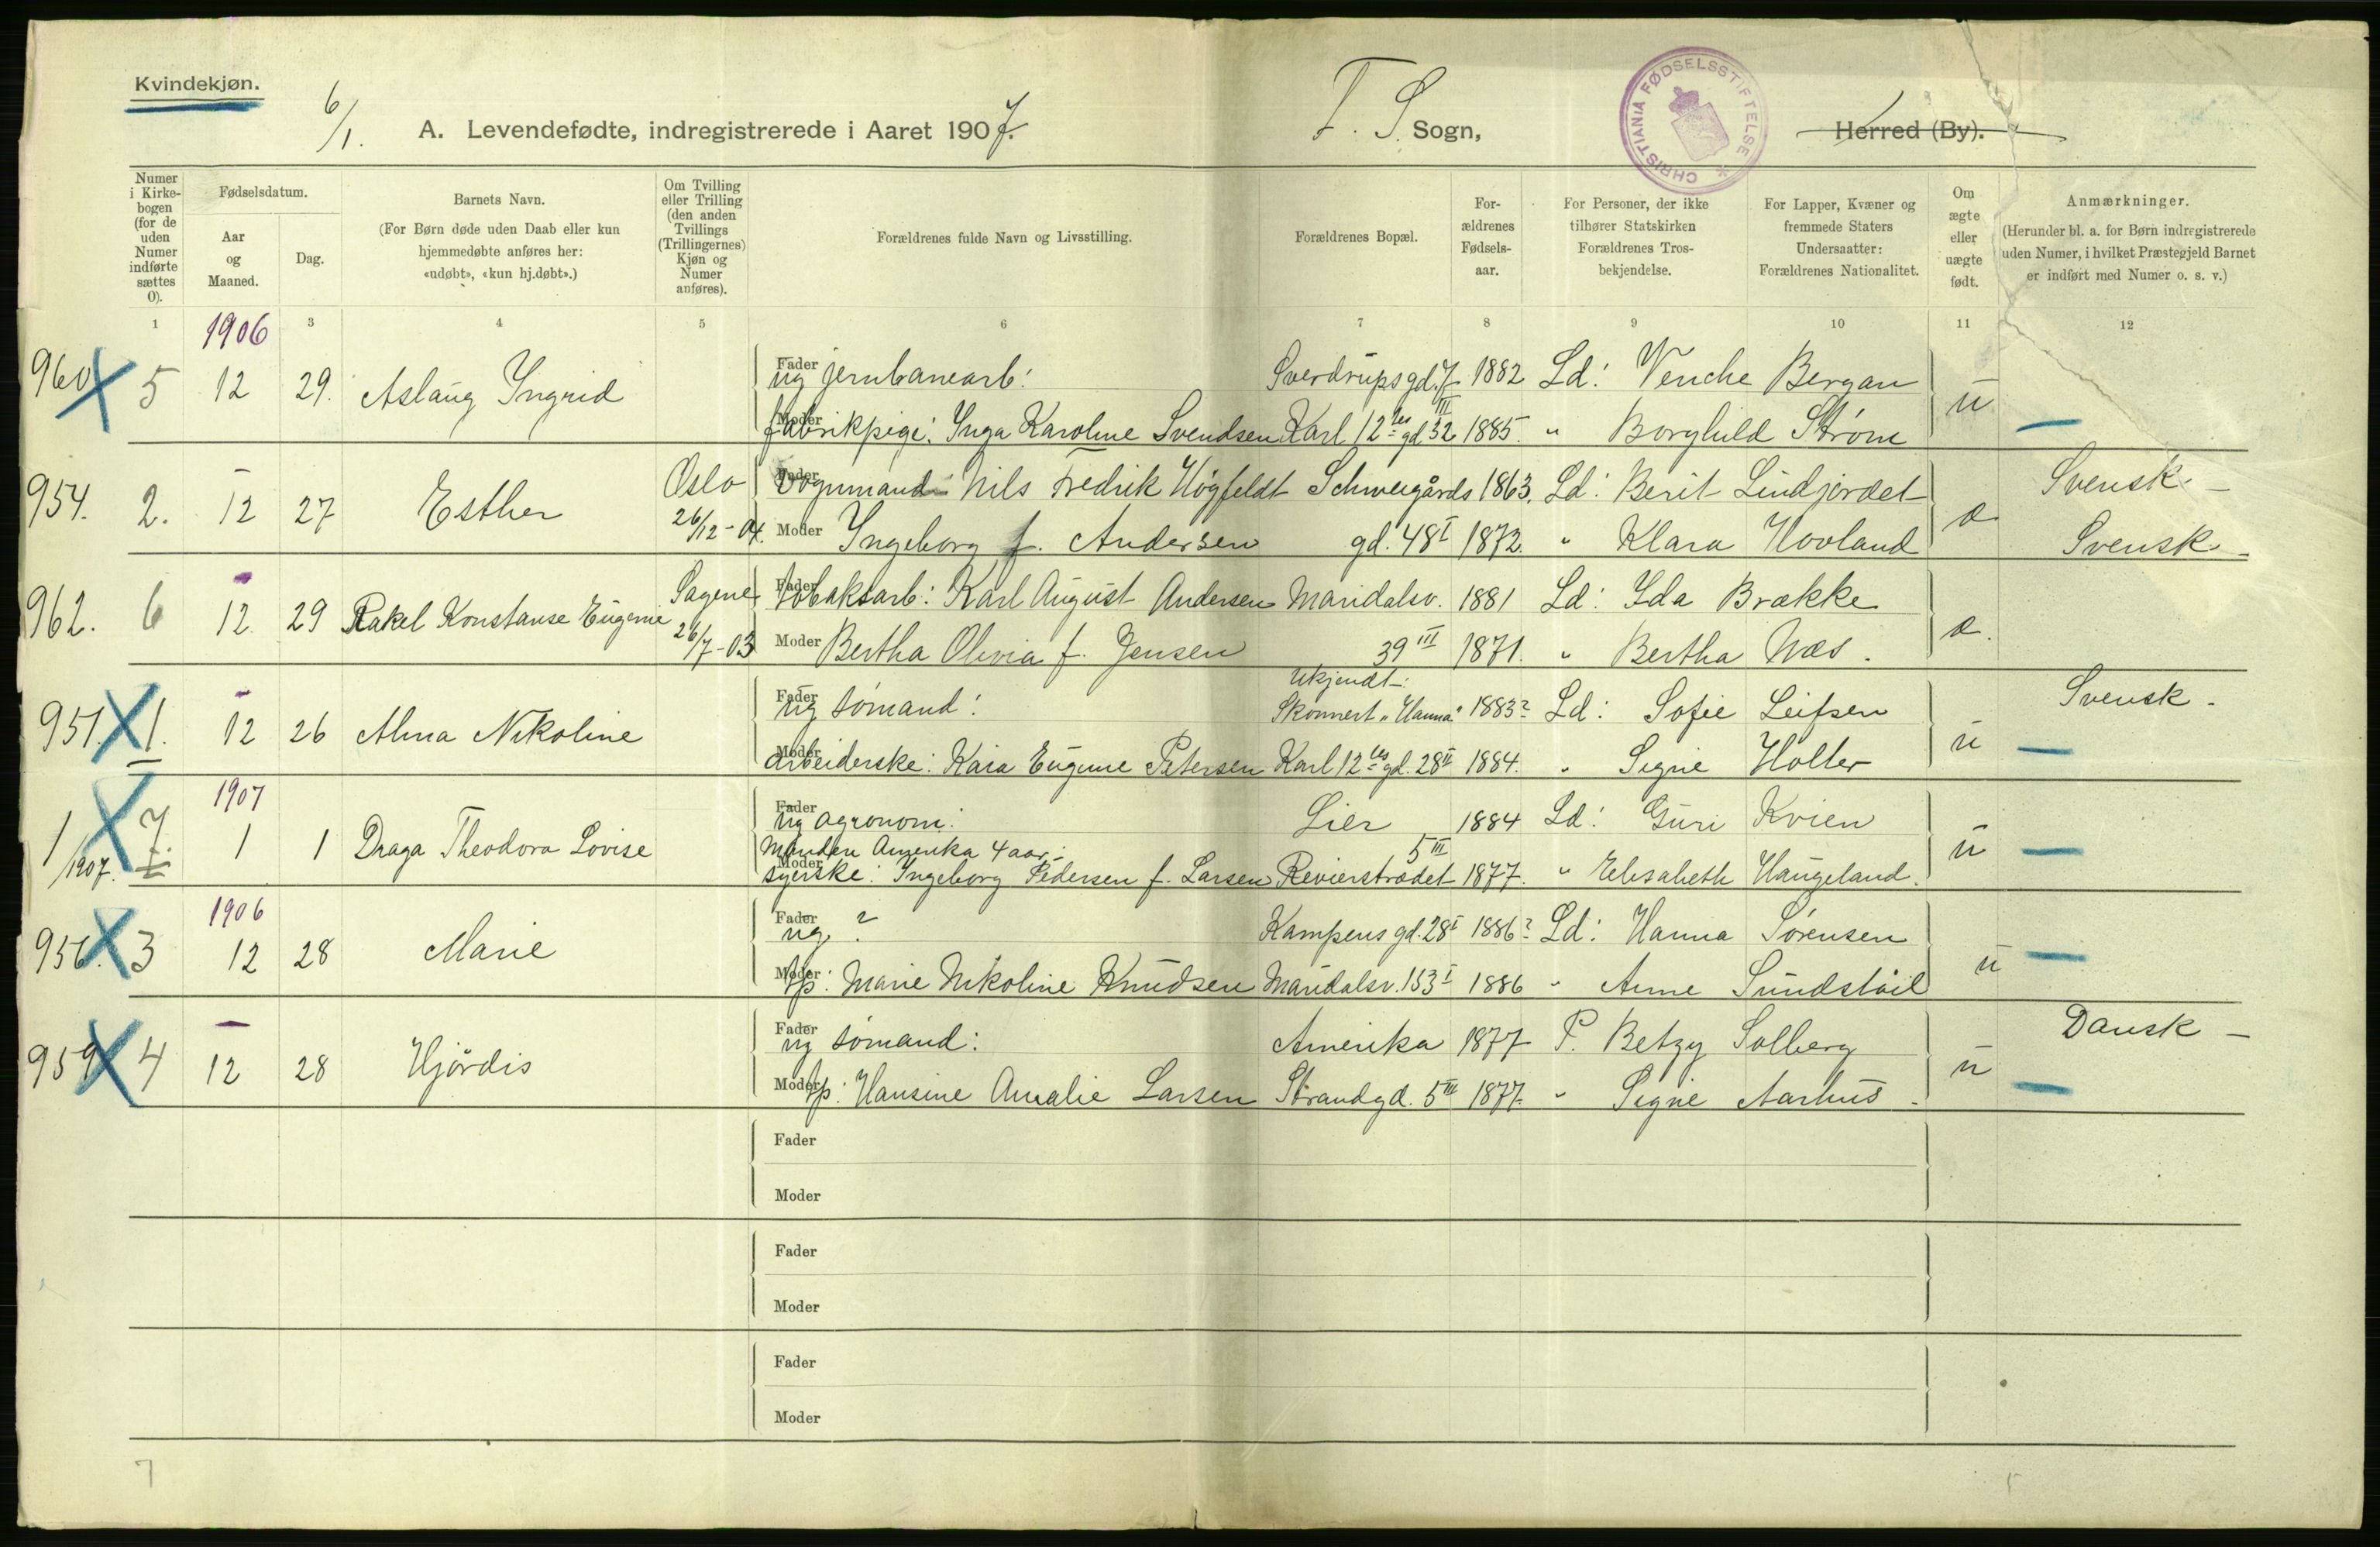 Kvindekjøn.
6/1.
A. Levendefødte, indregistrerede i Aaret 1907.
F. S. Sogn,
Herred (By).
CHRISTIANIA FØDSELSSTIFTELSE
Numer i Kirkebogen (for de uden Numer indførte sættes 0).
Fødselsdatum.
Aar og Maaned.
Dag.
Barnets Navn.
(For Børn døde uden Daab eller kun hjemmedøbte anføres her: «udøbt», «kun hj.døbt».)
Om Tvilling eller Trilling (den anden Tvillings (Trillingernes) Kjøn og Numer anføres).
Forældrenes fulde Navn og Livsstilling.
Forældrenes Bopæl.
Forældrenes Fødselsaar.
For Personer, der ikke tilhører Statskirken Forældrenes Trosbekjendelse.
For Lapper, Kvæner og fremmede Staters Undersaatter: Forældrenes Nationalitet.
Om ægte eller uægte født.
Anmærkninger.
(Herunder bl. a. for Børn indregistrerede uden Numer, i hvilket Præstegjeld Barnet er indført med Numer o. s. v.)
1 3 4 5 6 7 8 9 10 11 12
1906
960 5 12 29. Aslaug Yngrid
Fader ug jernbanearb: Sverdrupsgd. 7 III 1882 Ld: Venche Bergan
Moder fabrikpige: Inga Karoline Svendsen Karl 12tes gd 32 1885. " Borghild Strøm u
954. 2. 12 27 Esther Oslo 26/12-04.
Fader Vognmand Nils Fredrik Høgfeldt Schweigårds 1863. Ld: Berit Lindjordet Svensk. -
Moder Ingeborg f. Andersen gd. 48 I 1872. " Klara Hovland Svensk -
962. 6 12 29 Rakel Konstanse Eugenie Sagene 26/7-03
Fader Tobaksarb: Karl August Andersen Maridalsv. 1881 Ld: Ida Brække
Moder Bertha Olivia f. Jensen 39 III 1871. " Bertha Næs.
951. 1. 12 26 Alma Nikoline
Ukjendt.
Fader ug sømand: Skonnert "Hanna" 1883? Ld: Sofie Leifsen Svensk -
Moder Arbeiderske: Kaia Eugenie Petersen Karl 12tes gd. 28 II 1884. " Signe Holter u
1907
1/1907. 7. 1 1 Draga Theodora Lovise
Fader ug agronom: Lier 1884 Ld: Guri Kvien
Manden Amerika 4 aar: 5 III
Moder syerske: Ingeborg Pedersen f. Larsen Revierstrædet 1877. " Elisabeth Haugeland. u
1906
956. 3 12 28 Marie
Fader ug ? Kampens gd. 28 I 1886? Ld: Hanna Sørensen
Moder tjp: Marie Nikoline Knudsen Maridalsv. 153 I 1886 " Anne Sundstøil u
959 4 12 28 Hjørdis
Fader ug sømand: Amerika 1877 P. Betzy Solberg Dansk -
Moder tjp: Hansine Amalie Larsen Strandgd. 5 III 1877. " Signe Aarhus. u
Fader
Moder
Fader
Moder
Fader
Moder
7